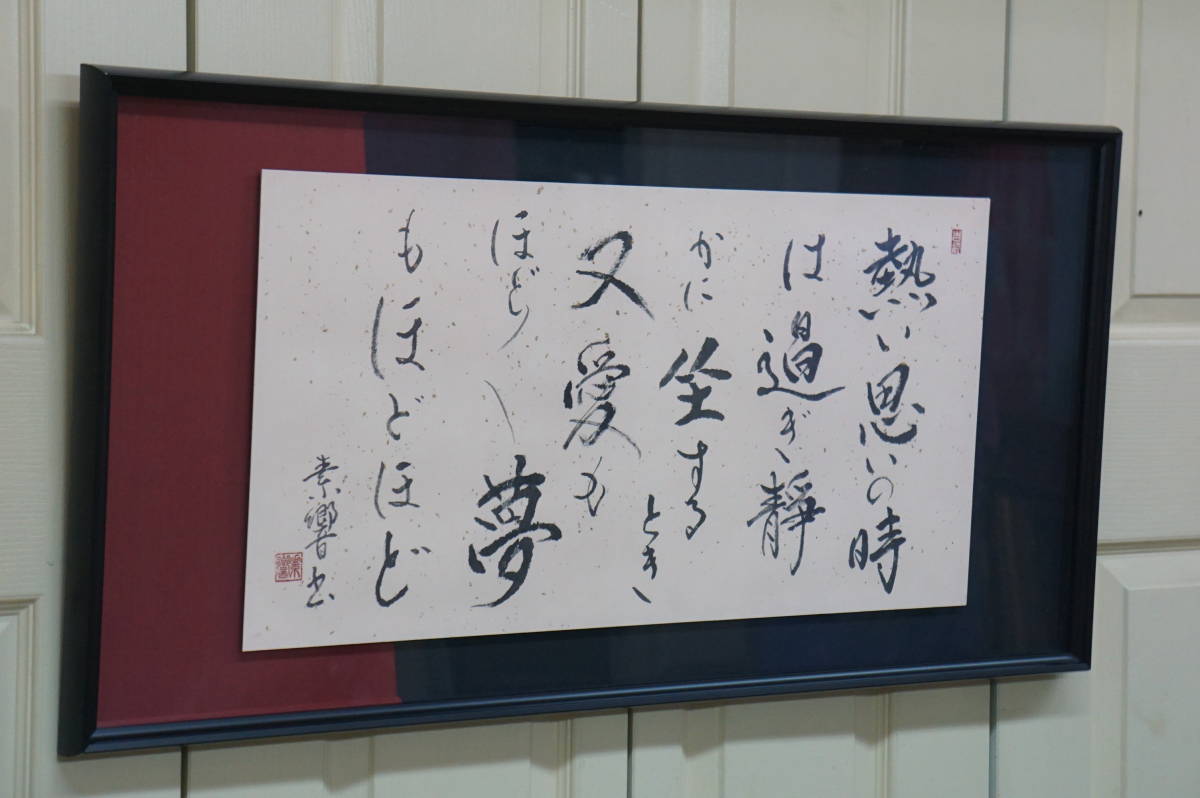 熱い思いの時
は過ぎ靜
かに坐する
とき
又愛も
ほど〱夢
もほどほど
素響書